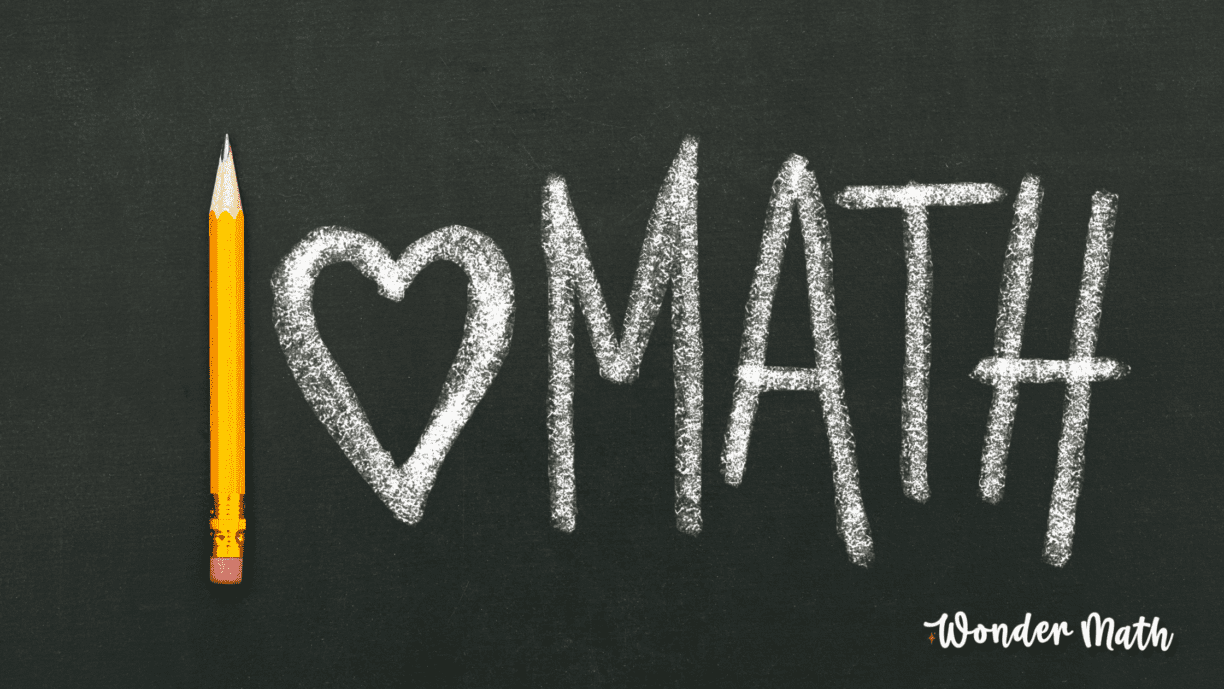 I ♡ MATH
Wonder Math